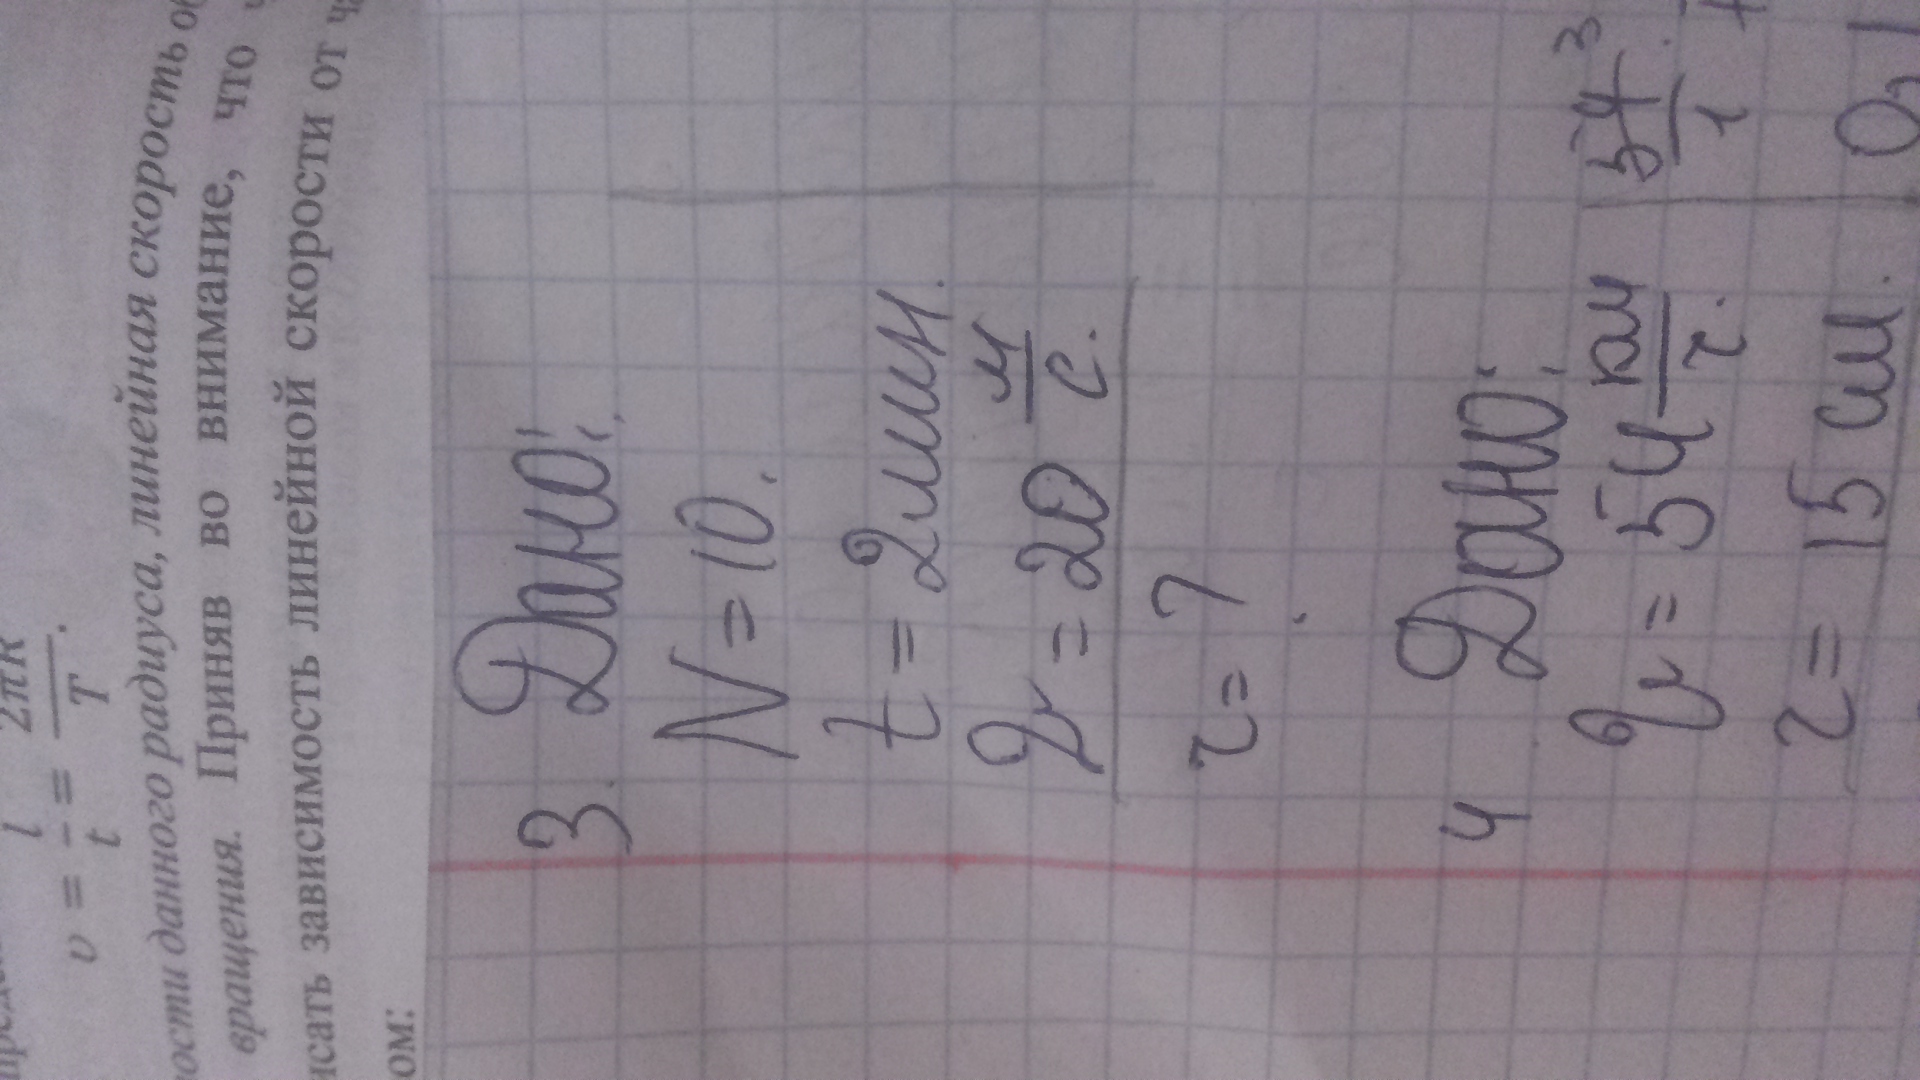 v = l/t = 2πR/T.
ости данного радиуса, линейная скорость
вращения. Приняв во внимание, что
исать зависимость линейной скорости от
ом:
3. Дано:
N = 10.
t = 2 мин.
v = 20 м/с.
r = ?
4 Дано:
v = 54 км/ч.
r = 15 см.